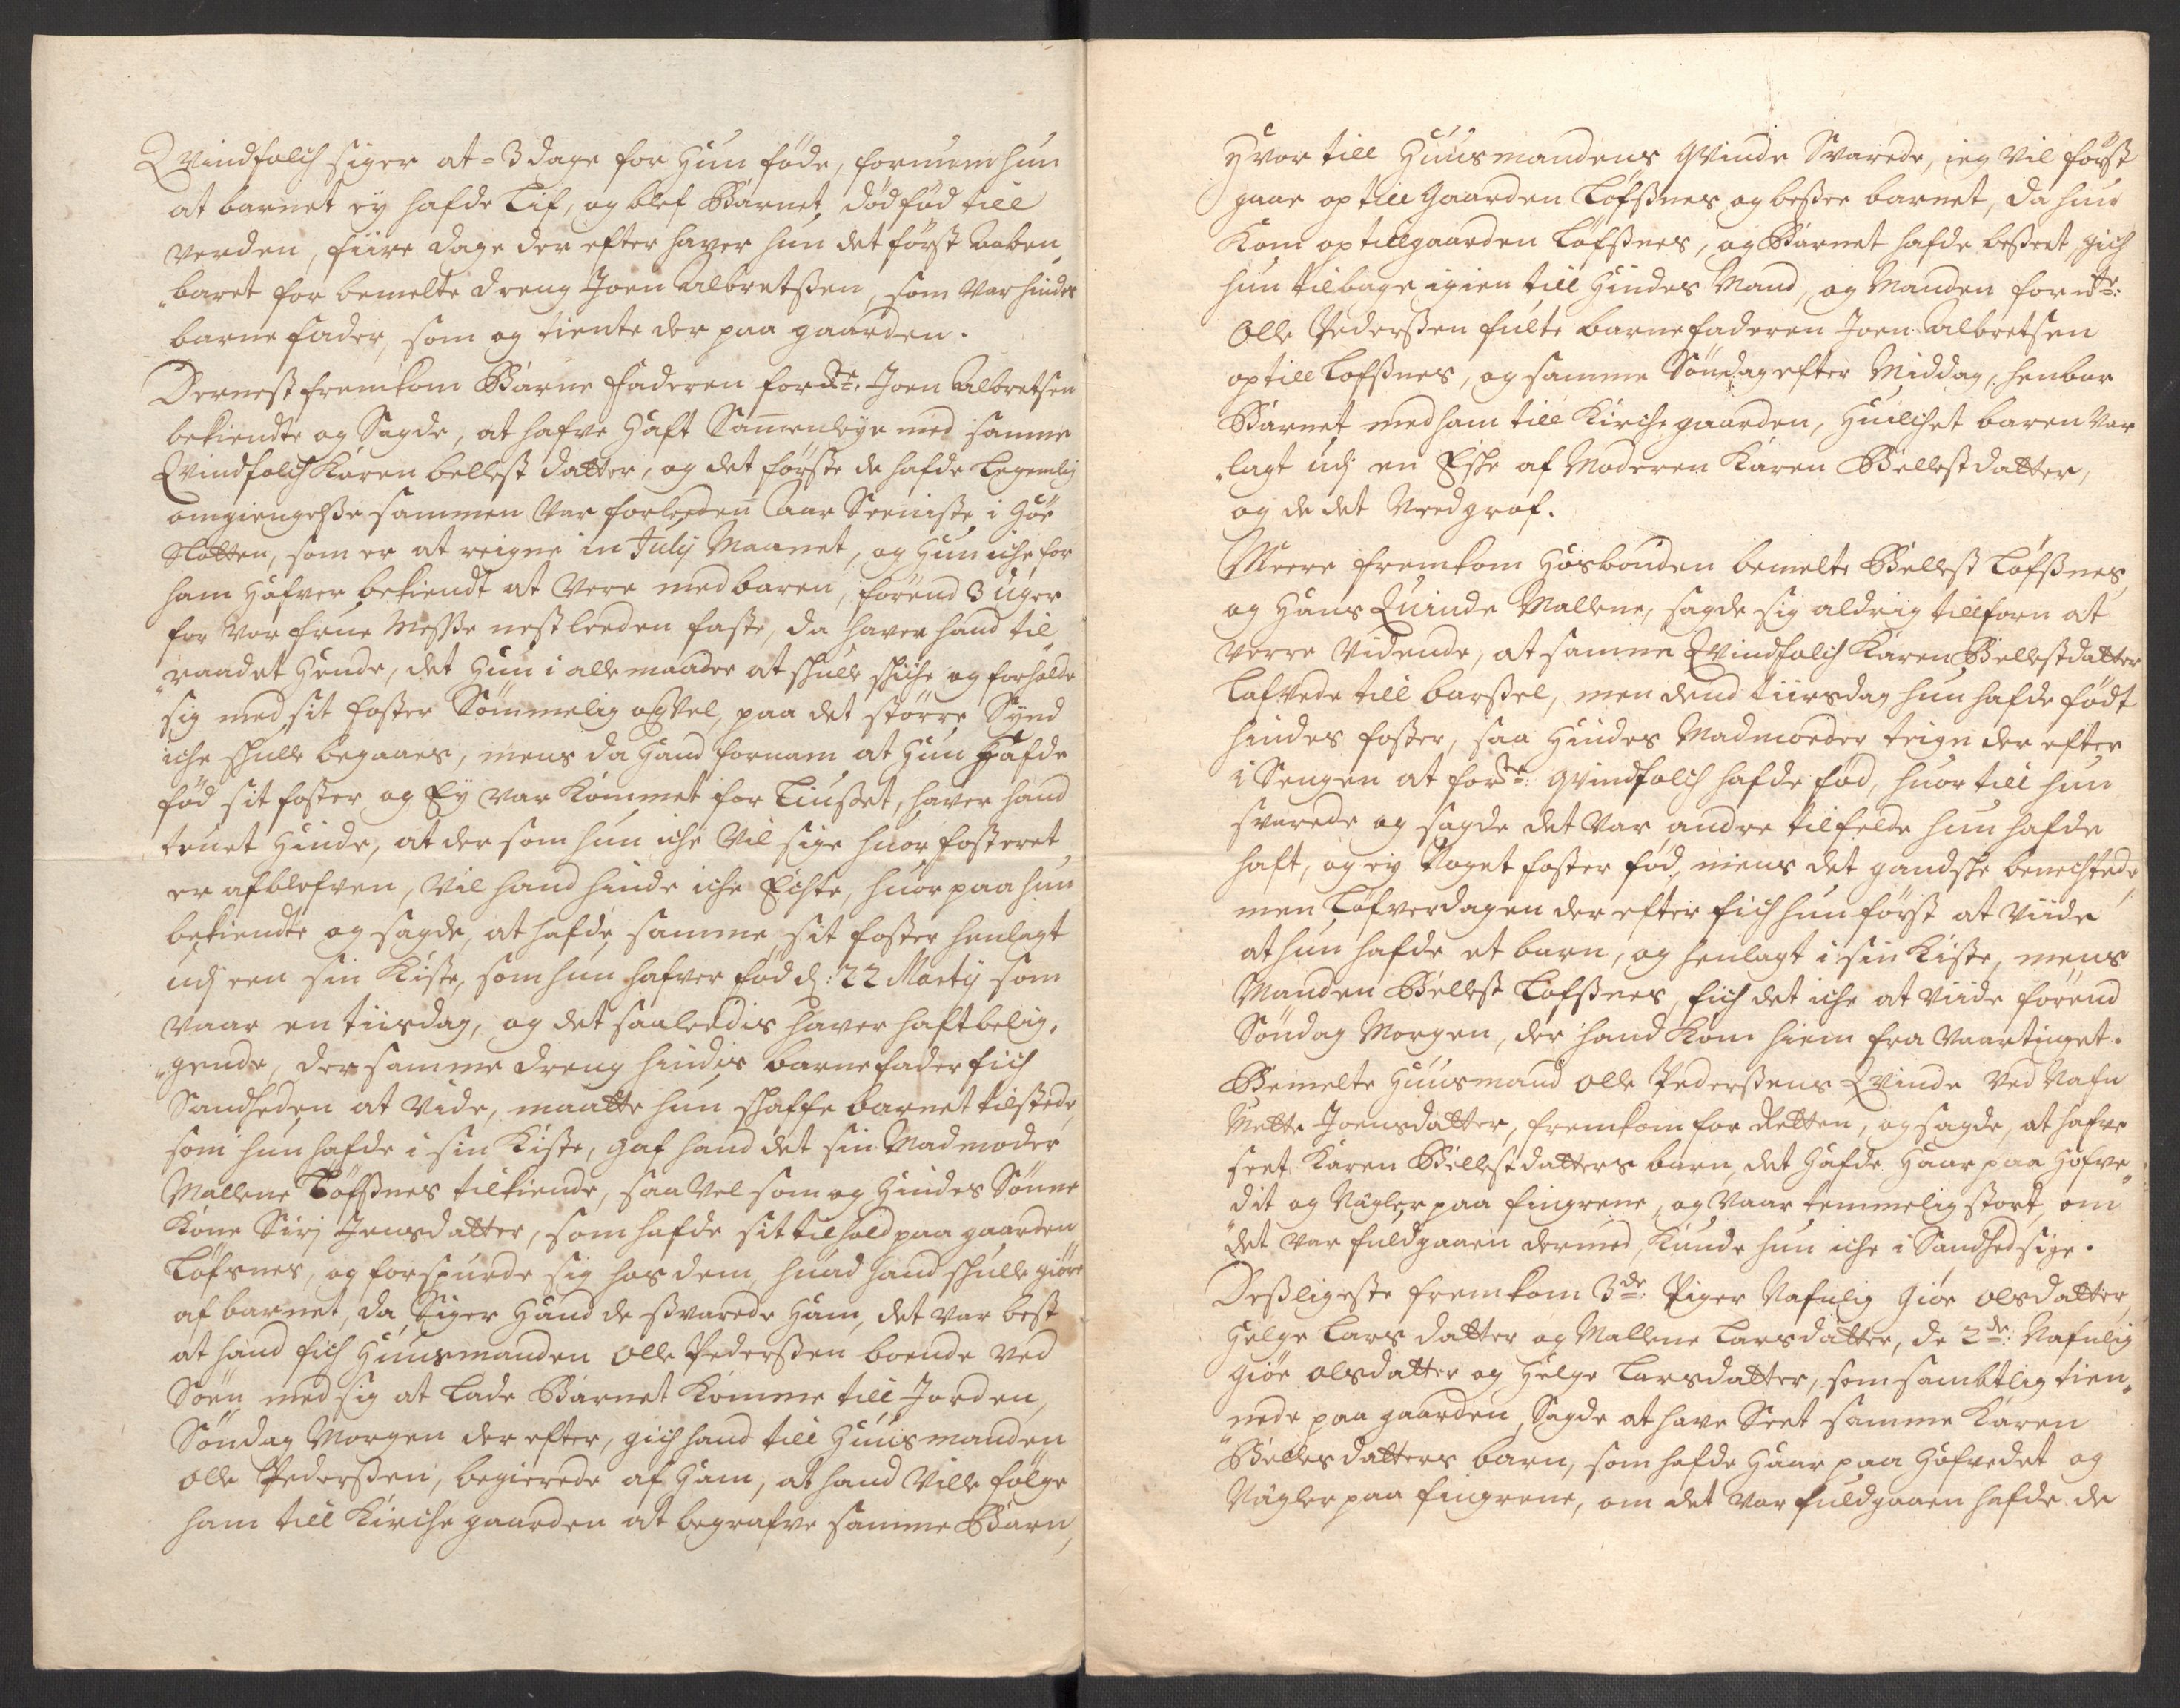 Qvindfolch siger at = 3 dage for hun føde, fornum hun
at barnet ey hafde Lif, og blef Barnet dødfød till
verden, fiire dage der efter haver hun det først aaben„
„baret for bemelte dreng Joen Albretsßen, som var hindes
barne fader, som og tiente der paa gaarden.
Dernest fremkom Barne faderen fordte: Joen Albretsen
bekiendte og Sagde, at hafve haft Samenleye med samme
Qvindfolch Karen bellest datter, og det første de hafde Legemlig
omgiengelße sammen var forleeden Aar Seeniste i Høe
Slotten, som er at reigne in July Maanet, og hun iche for
ham hafver bekiendt at vere med baren, førend 3 uger
for Vor frue Messe nest leeden faste, da haver hand til„
„raadet hende, det hun i alle maader at skulle skiche og forholde
sig med sit foster Sømmelig og vel, paa det større Synd
iche skulle begaaes, mens da hand fornam at hun hafde
fød sit foster og Ey var kommet for Liußet, haver hand
truet hinde, at der som hun iche vil sige huor fosteret
er afblefven, vil hand hinde iche Echte, huor paa hun
bekiendte og sagde, at hafde samme sit foster henlagt
udj een sin Kiste, som hun hafver fød d: 22 Martij som
vaar en tiisdag, og det saaleedis haver haft belig„
„gende, der samme dreng hindis barnefader fich
Sandheden at vide, maatte hun skaffe barnet tilstede,
som hun hafde i sin Kiste, gaf hand det sin Madmoder
Mallene Løfßnes tilkiende, saa vel som og hindes Sønne
Kone Sirj Jensdatter, som hafde sit tilhold paa gaarden
Løfsnes, og forspurde sig hos dem, huad hand skulle giøre
af barnet, da Siger hand de svarede ham, det var best
at hand fich Huusmanden Olle Pederßen boende ved
Søen med sig at lade Barnet komme till Jorden,
Søndag Morgen der efter, gich hand till Huusmanden
Olle Pederßen, begierede af ham, at hand ville følge
ham till Kirche gaarden at begrafve samme Barn,
Hvor till Huusmandens qvinde Svarede, ieg vil først
gaae op till Gaarden Løfßnes og beßee barnet, da hun
Kom op till gaarden Løfßnes, og Barnet hafde beßeet, gich
hun tilbage igien till hindes Mand, og Manden fordte:
Olle Pederßen fulte barnefaderen Joen Albretsen
op till Løfßnes, og samme Søndag efter Middag, henbar
Barnet med ham till Kirche gaarden, huilchet baren var
„lagt udj en Eske af Moderen Karen Bellestdatter,
og de det Needgrof.
Meere fremkom Hosbonden bemelte Bellest Løfßnes,
og hans Quinde Mallene, sagde sig aldrig tillforn at
verre vidende, at samme Qvindfolch Karen Bellestdatter
lafvede till barßel, men dend tiirsdag hun hafde født
hindes foster, saa hindes Madmoeder teign der efter
i Sengen at fordte: qvindfolch hafde fød, huor till hun
svarede og sagde det var andre tilfelde hun hafde
haft, og ey noget foster fød, mens det gandske benechtede,
men Løfverdagen der efter fich hun først at viide
at hun hafde et barn, og henlagt i sin Kiste, mens
Manden Bellest Løfßnes, fich det iche at viide førend
Søndag Morgen, der hand Kom hiem fra Vaartinget.
Bemelte Huusmand Olle Pederßens Qvinde ved Nafn
Mette Joensdatter, fremkom for Retten, og sagde, at hafve
seet Karen Bellestdatters barn, det hafde haar paa Hofve„
„dit og Nagler paa fingrene, og vaar temmelig stort, om
det var fuldgaaen dermed, kunde hun iche i Sandhed sige.
Deßligeste fremkom 3de: Piger Nafnlig Giøe Olsdatter,
Helge Lars datter og Mallene Larsdatter, de 2de: Nafnlig
Giøe Olsdatter og Helge Larsdatter, som sambtlig tien„
„nede paa gaarden, Sagde at have Seet samme Karen
Bellesdatters barn, som hafde haar paa Hofvedet og
Nagler paa fingrene, om det var fuldgaaen hafde de